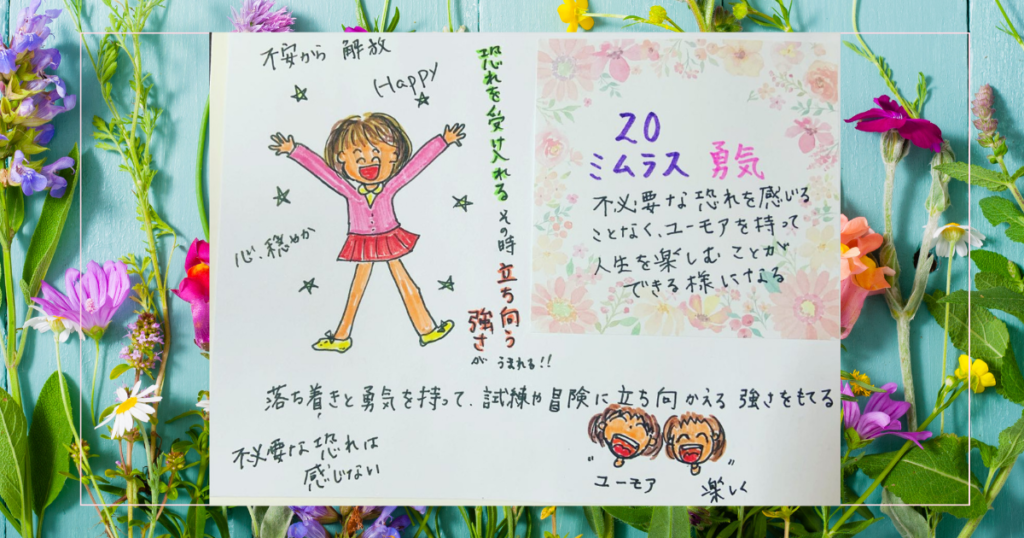 不安から 解放
Happy
心、穏やか
恐れを受け入れる その時 立ち向う
強さ が うまれる!!
20
ミムラス 勇気
不必要な恐れを感じる
ことなく、ユーモアを持って
人生を楽しむことが
できる様になる
落ち着きと勇気を持って、試練や冒険に立ち向かえる 強さをもてる
不必要な恐れは
感じない
"ユーモア 楽しく"